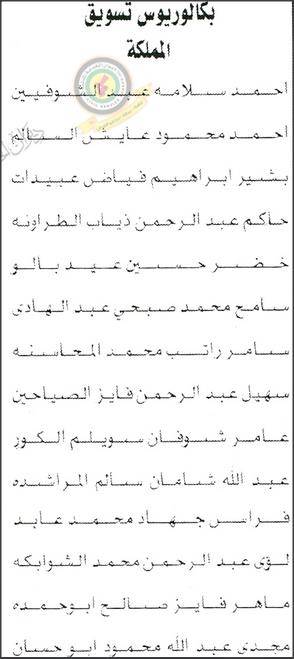 بكالوريوس تسويق
المملكة
احمد سلامه عبد الشوفيين
احمد محمود عايش السالم
بشير ابراهيم فياض عبيدات
حاكم عبد الرحمن ذياب الطراونه
خضر حسين عيد بالو
سامح محمد صبحي عبد الهادى
سامر راتب محمد المحاسنه
سهيل عبد الرحمن فايز الصياحين
عامر شوفان سويلم الكور
عبد الله شامان سالم المراشده
فراس جهاد محمد عابد
لؤى عبد الرحمن محمد الشوابكه
ماهر فايز صالح ابوحمده
مجدى عبد الله محمود ابو حسان